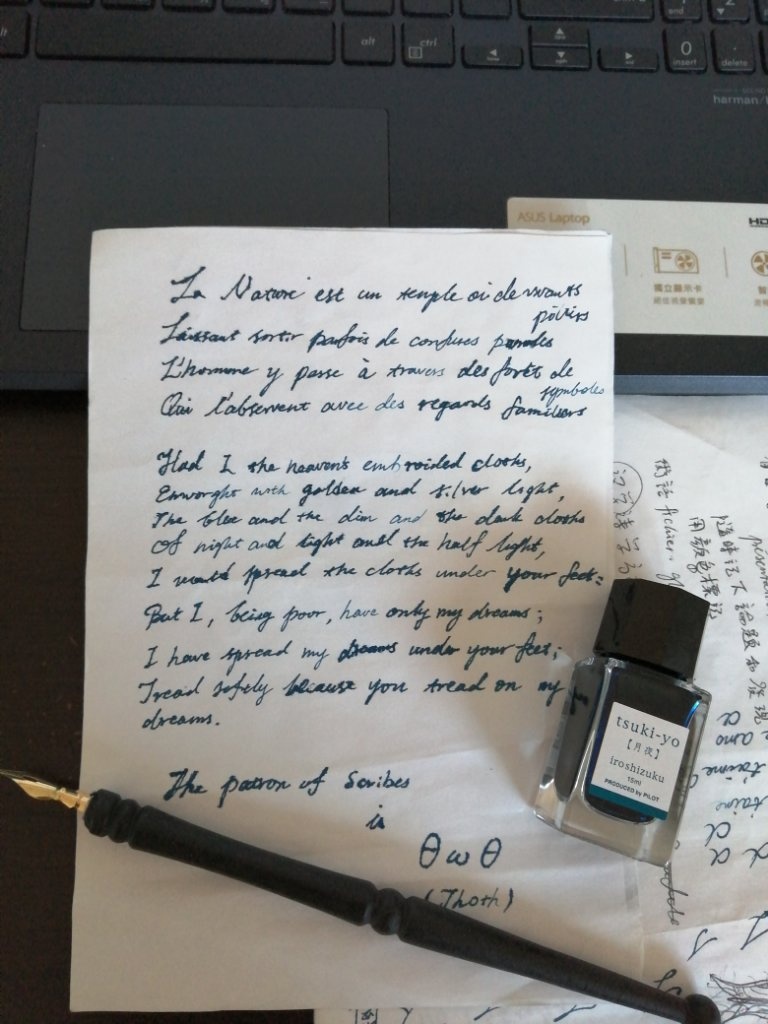 alt
ctrl
end
0
insert
delete
harman/
ASUS Laptop
HD
獨立顯示卡
La Nature est un temple oi de vivants
piliers
Laissant sortir parfois de confuses paroles
L'homme y passe à travers des forêt de
symboles
Qui l'observent avec des regards familiers
Had I the heaven's embroided cloths,
Enworght with golden and silver light,
The blee and the dim and the dark cloths
Of night and light and the half light,
I would spread the cloths under your feet:
But I, being poor, have only my dreams;
I have spread my dreams under your feet;
Tread softly because you tread on my
dreams.
The patron of Scribes
is
θωθ
(Thoth)
tsuki-yo
【月夜】
iroshizuku
15ml
PRODUCED by PILOT
隨時記下論題和發現
用顏色標記